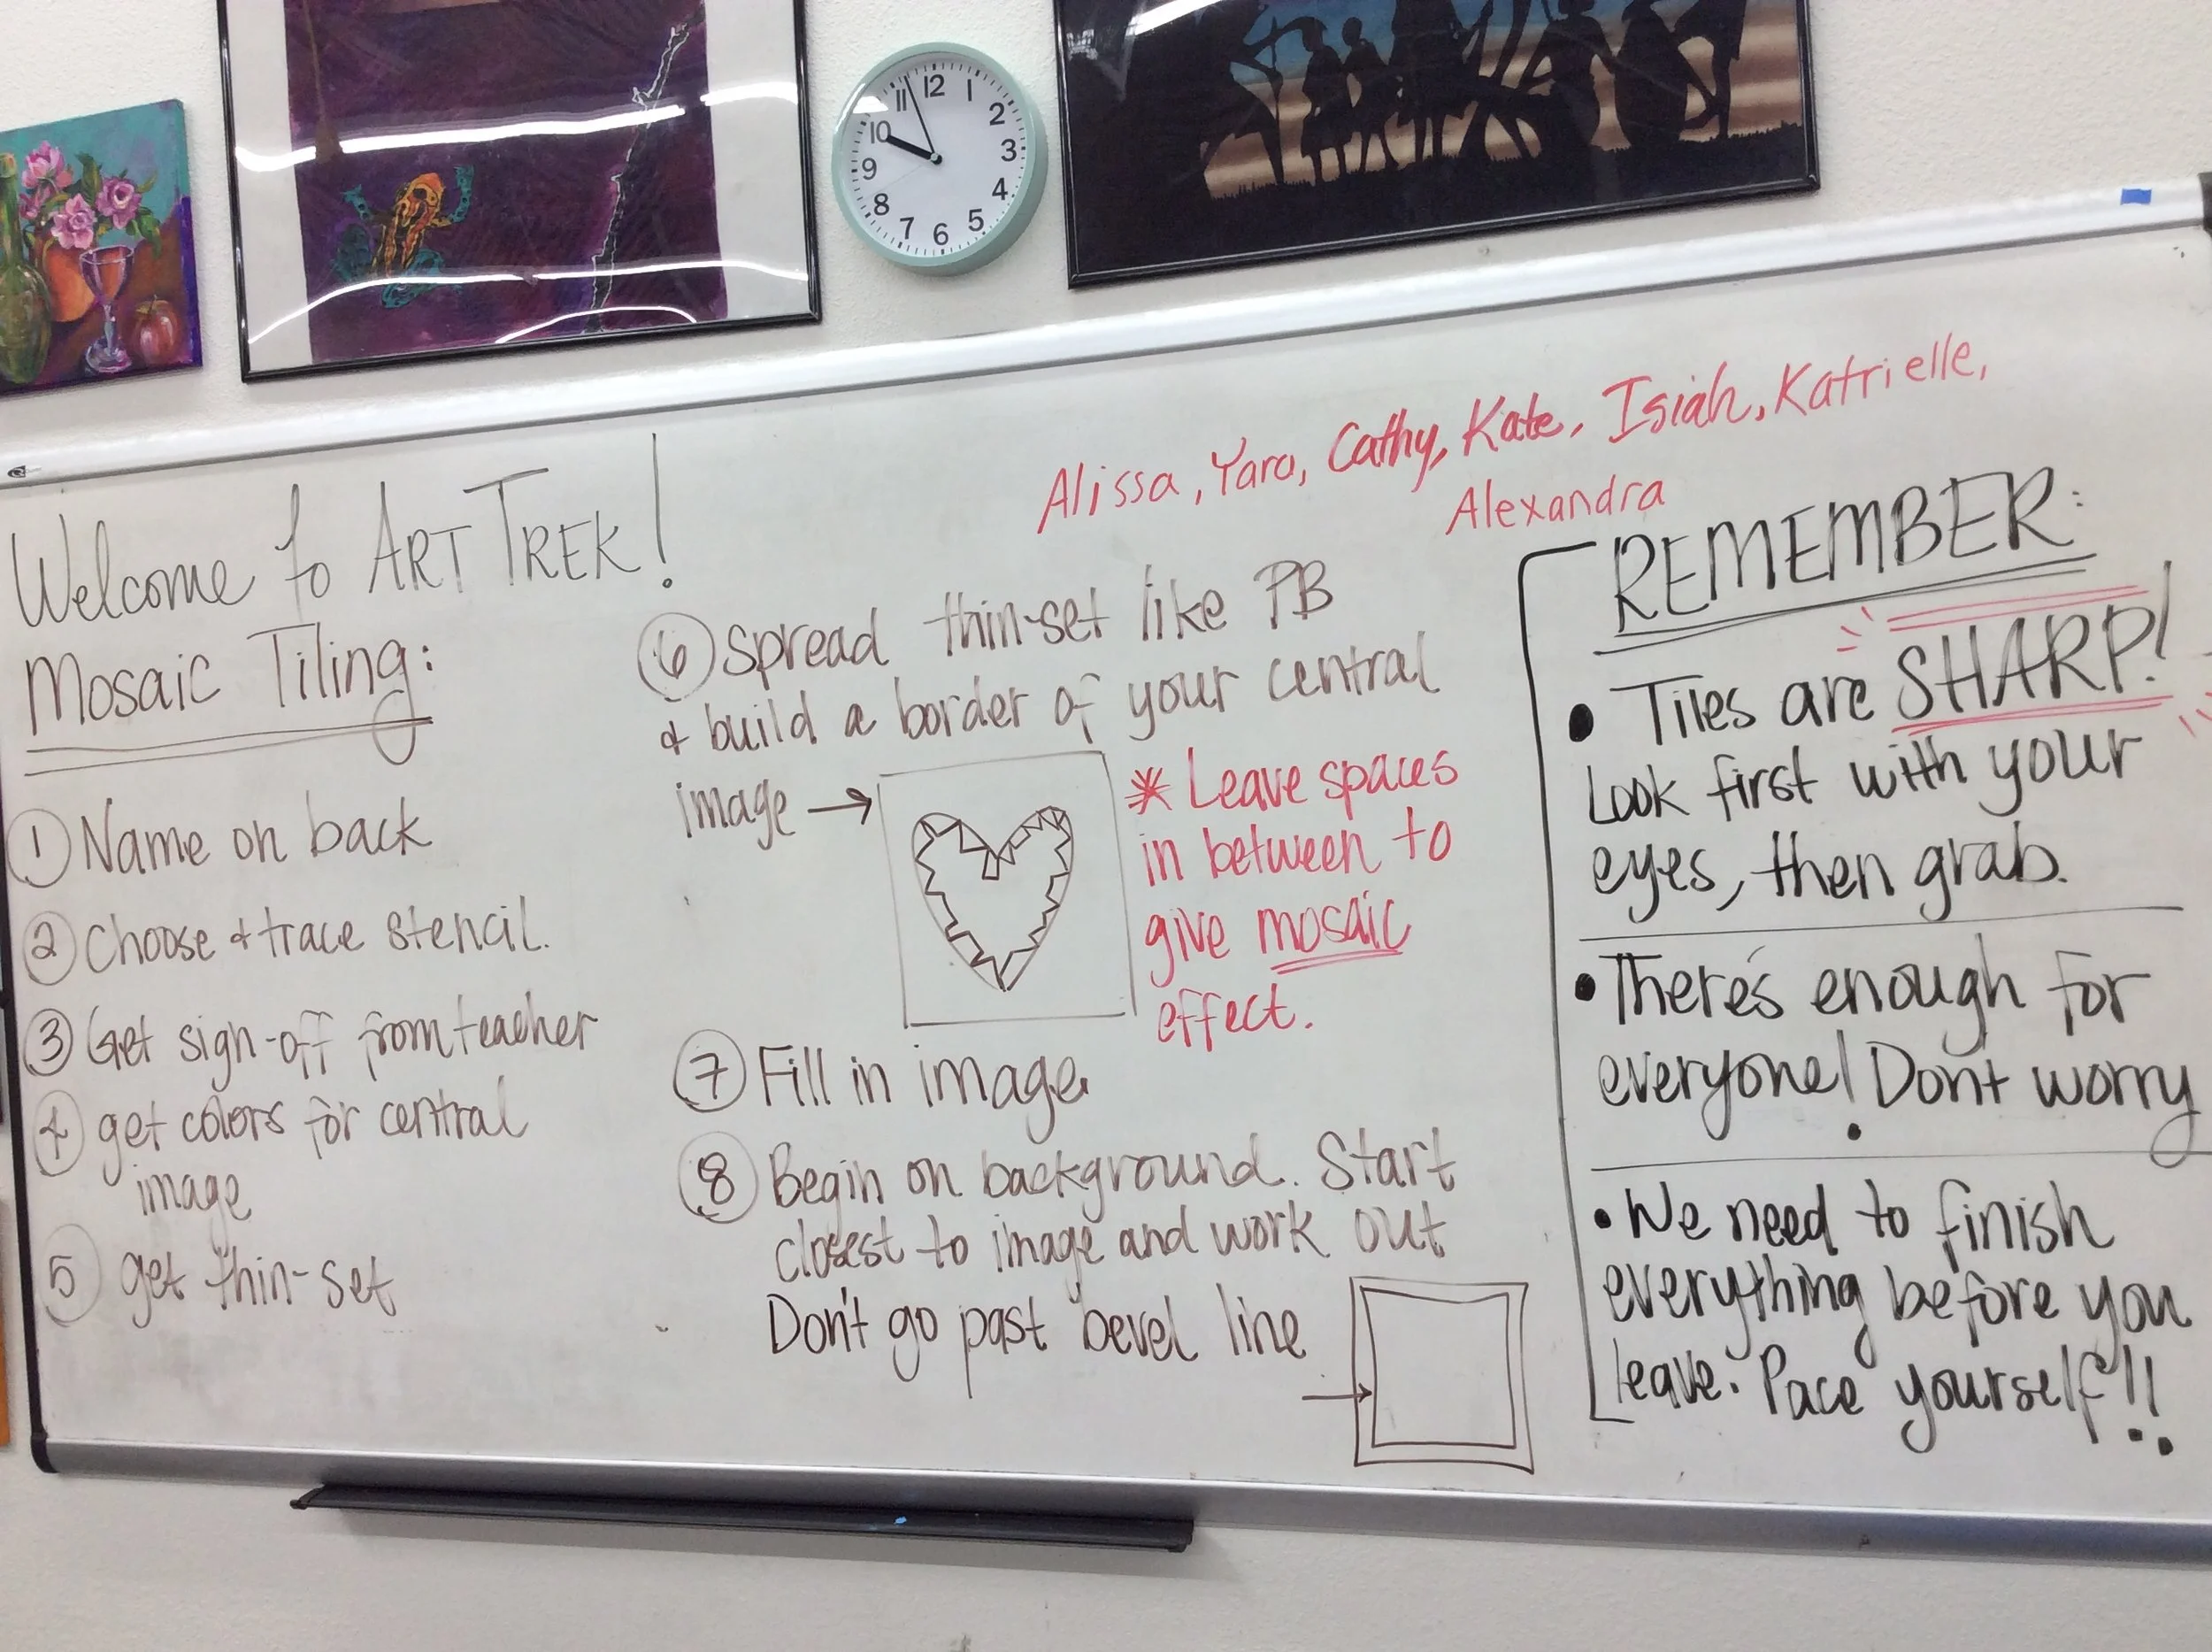 12
1
2
3
4
5
6
7
8
9
10
11
Alissa, Yara, Cathy, Kate, Isiah, Katrielle,
Alexandra
Welcome to ART TREK!
Mosaic Tiling:
① Name on back
② Choose & trace stencil.
③ Get sign-off from teacher
④ get colors for central
image
⑤ get thin-set
⑥ Spread thin-set like PB
& build a border of your central
image →
* Leave spaces
in between to
give mosaic
effect.
⑦ Fill in image
⑧ Begin on background. Start
closest to image and work out
Don't go past bevel line
REMEMBER:
• Tiles are SHARP!
Look first with your
eyes, then grab.
• There's enough for
everyone! Don't worry
• We need to finish
everything before you
leave. Pace yourself!!